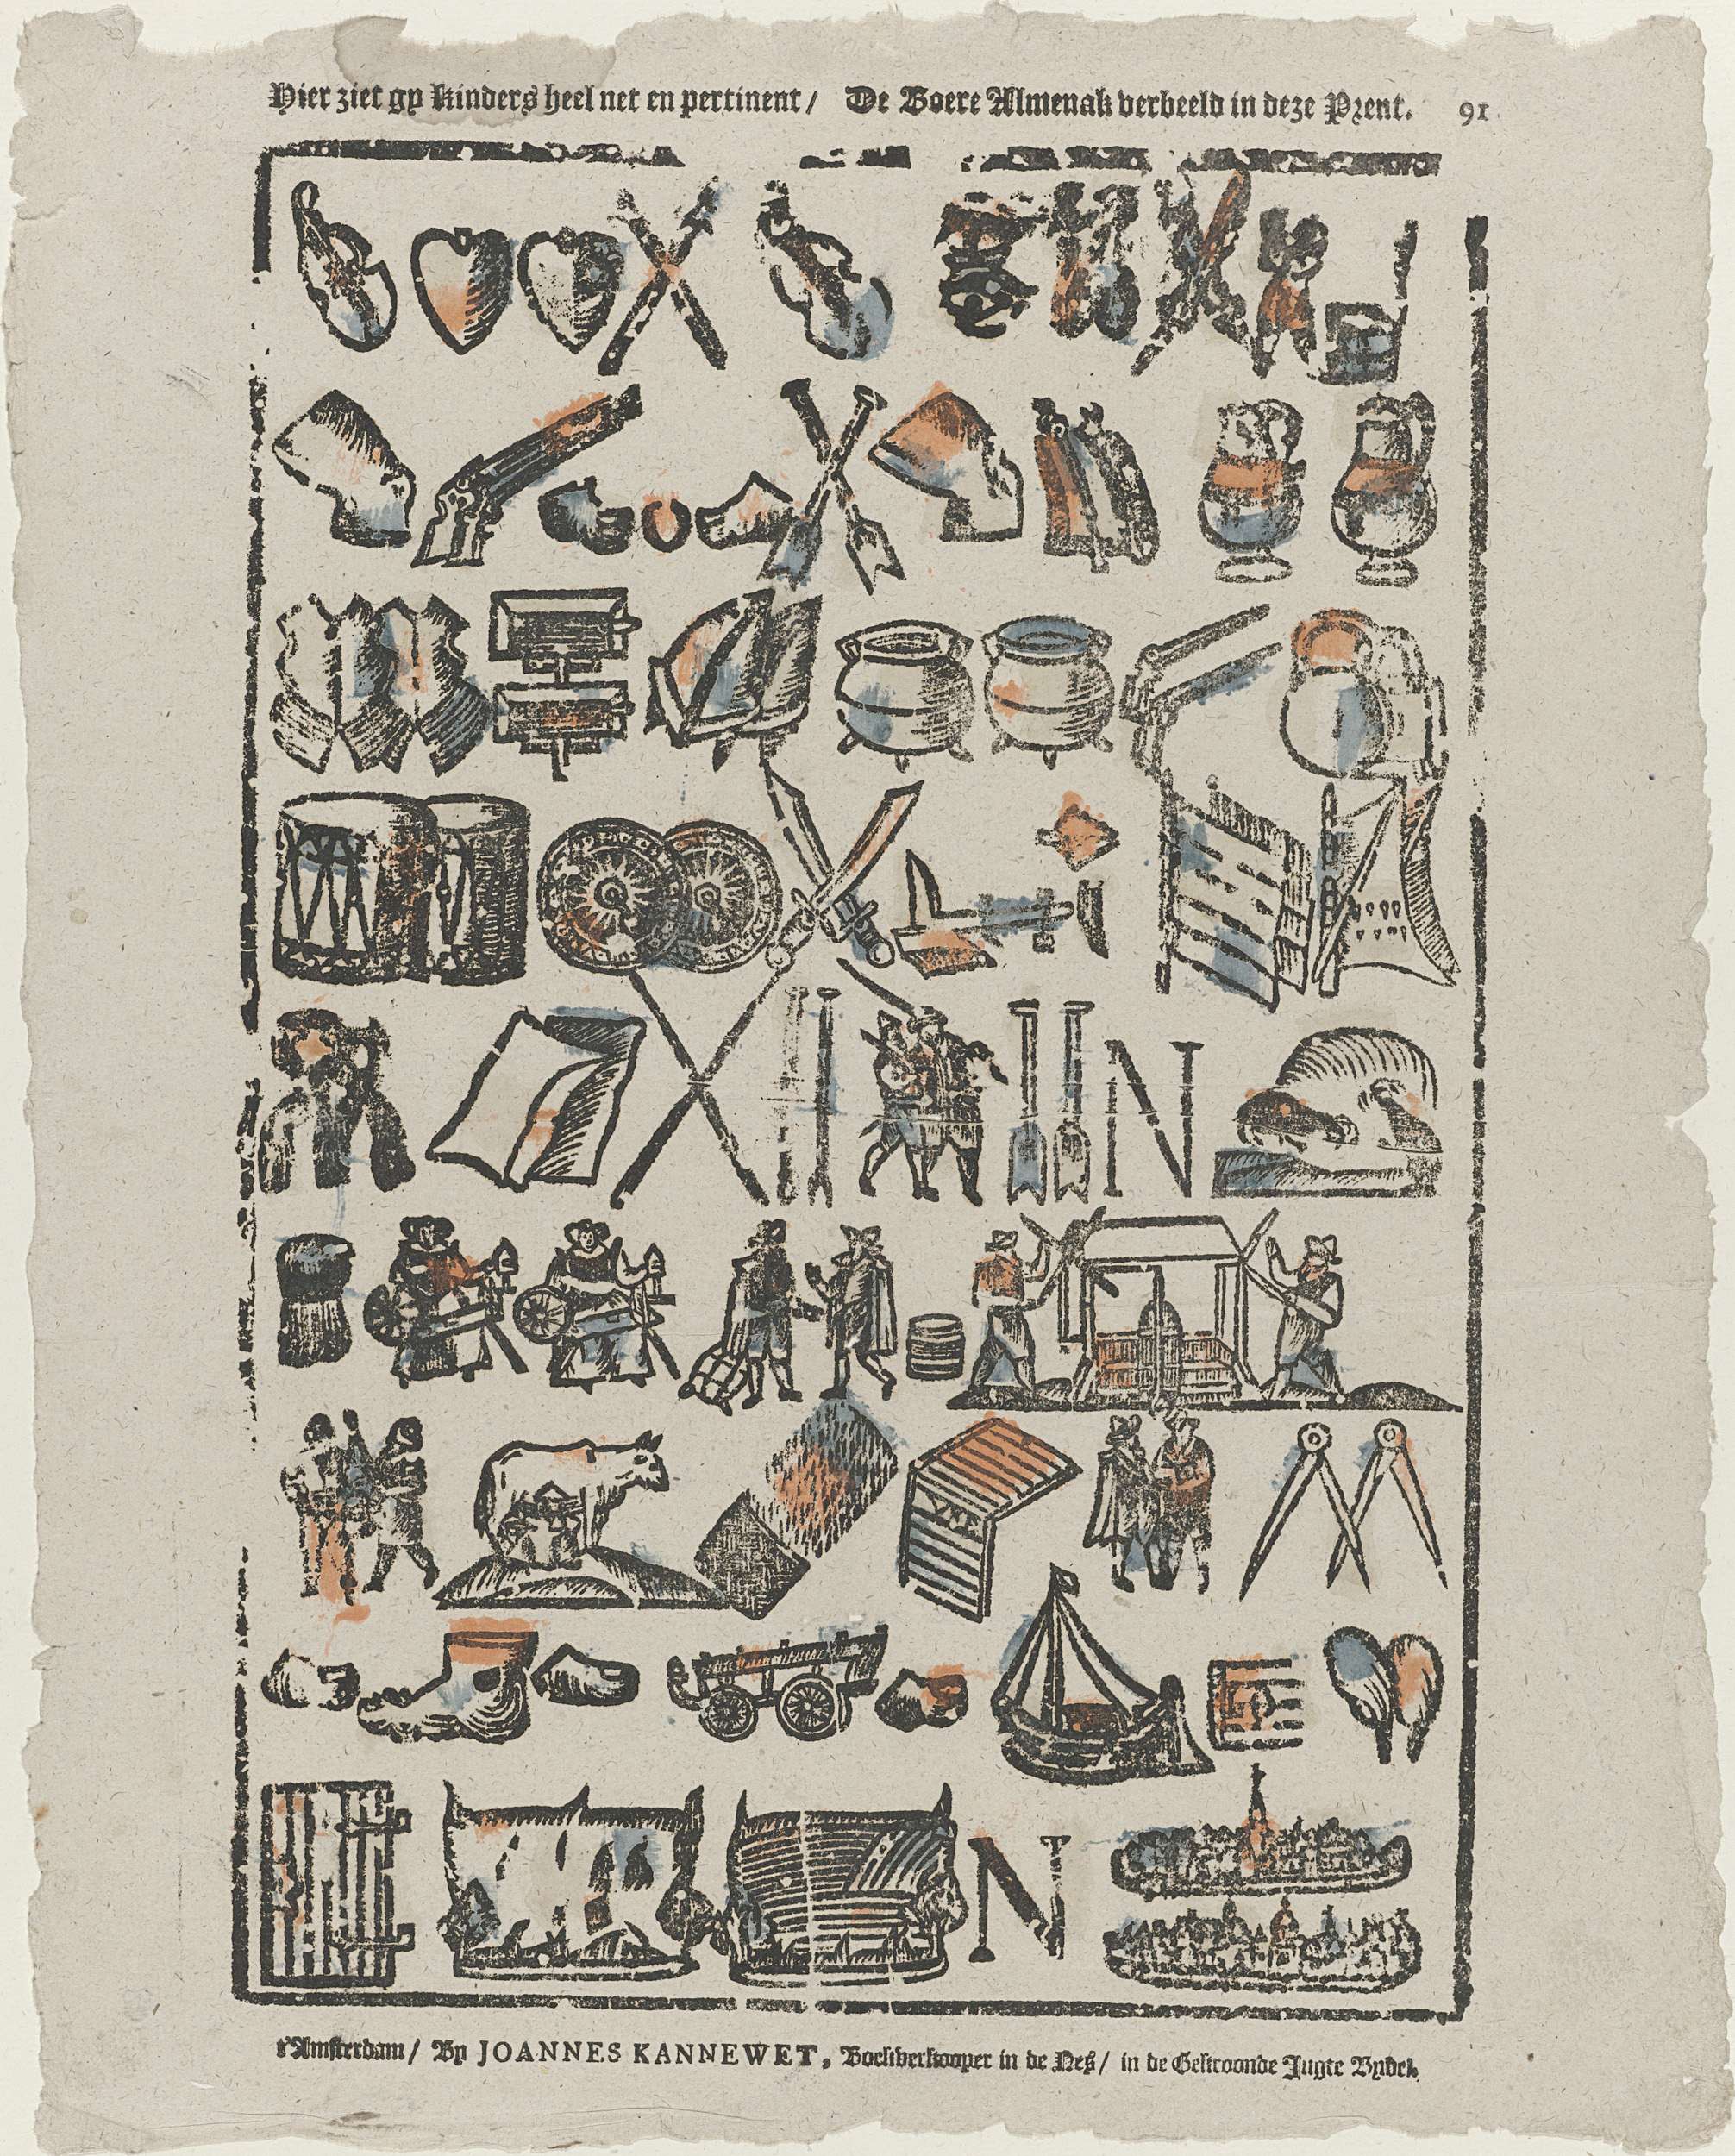 Hier ziet gy kinders heel net en pertinent / De Boere Almenak verbeeld in deze Prent. 91
N
N
t'Amsterdam / By JOANNES KANNEWET, Boekverkooper in de Nes / in de Gekroonde Jugte Bybel.